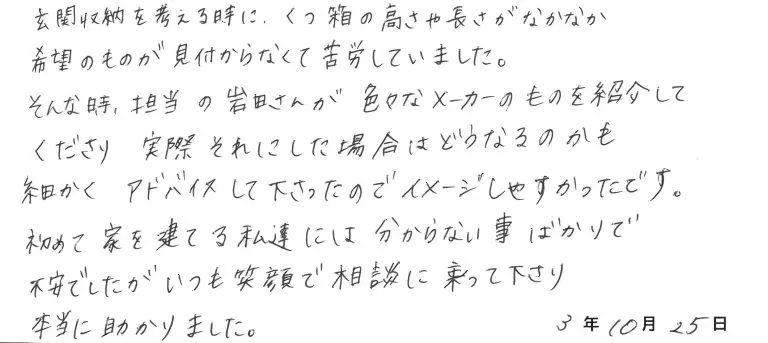 玄関収納を考える時に、くつ箱の高さや長さがなかなか
希望のものが見付からなくて苦労していました。
そんな時、担当の岩田さんが色々なメーカーのものを紹介して
くださり 実際それにした場合はどうなるのかも
細かく アドバイスして下さったのでイメージしやすかったです。
初めて家を建てる私達には分からない事ばかりで
不安でしたがいつも笑顔で相談に乗って下さり
本当に助かりました。
3年10月25日